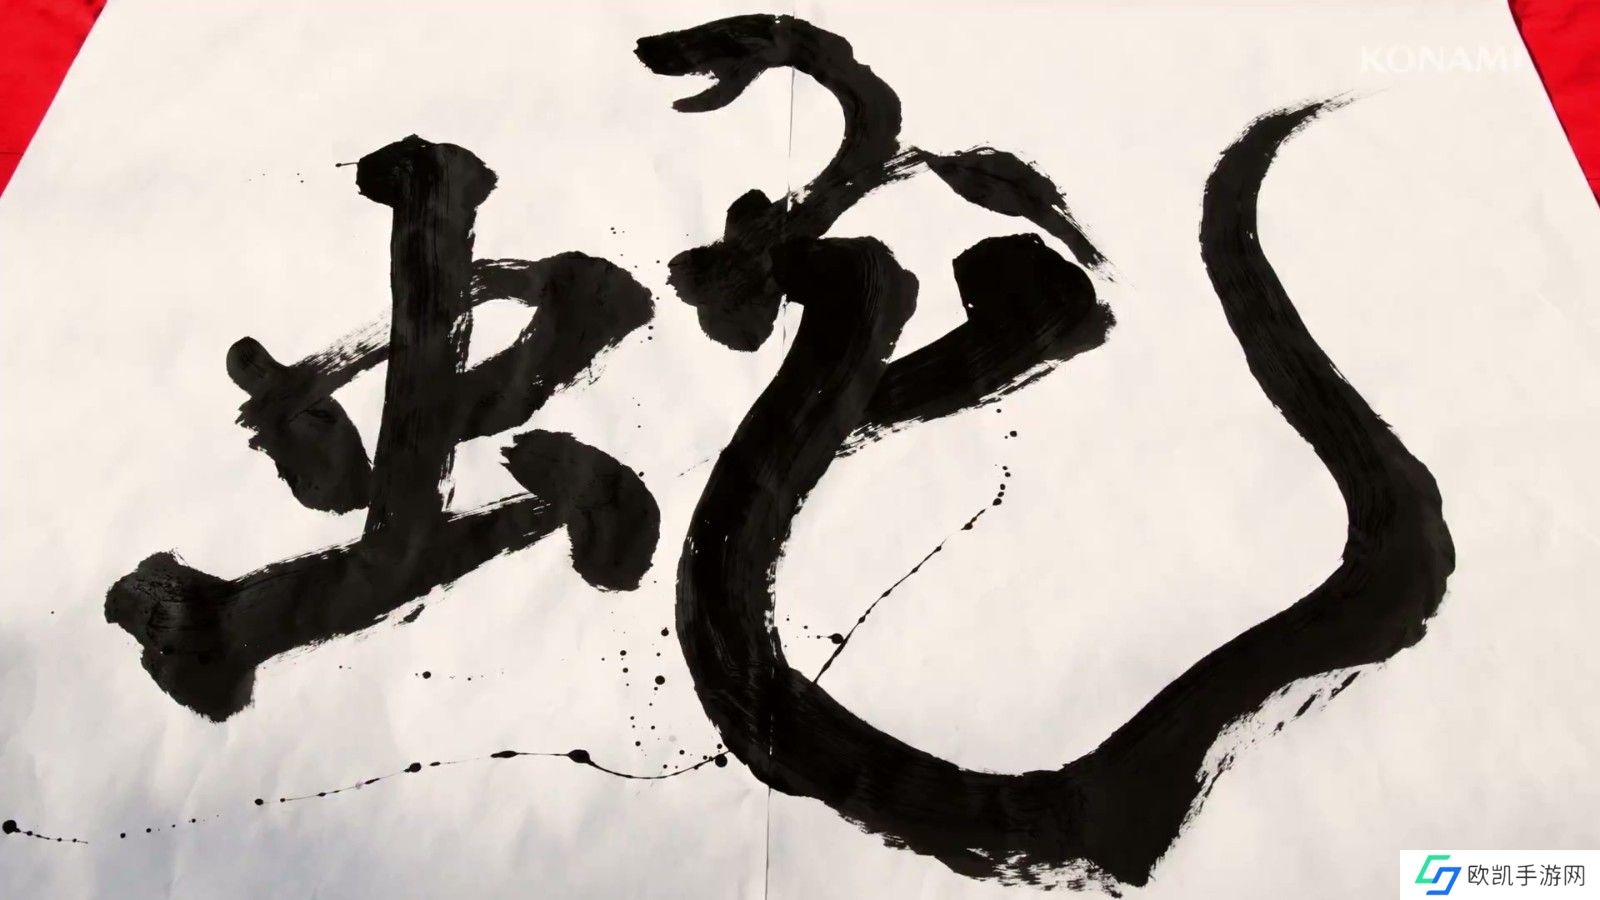 KONAMI
蛇
欧凯手游网